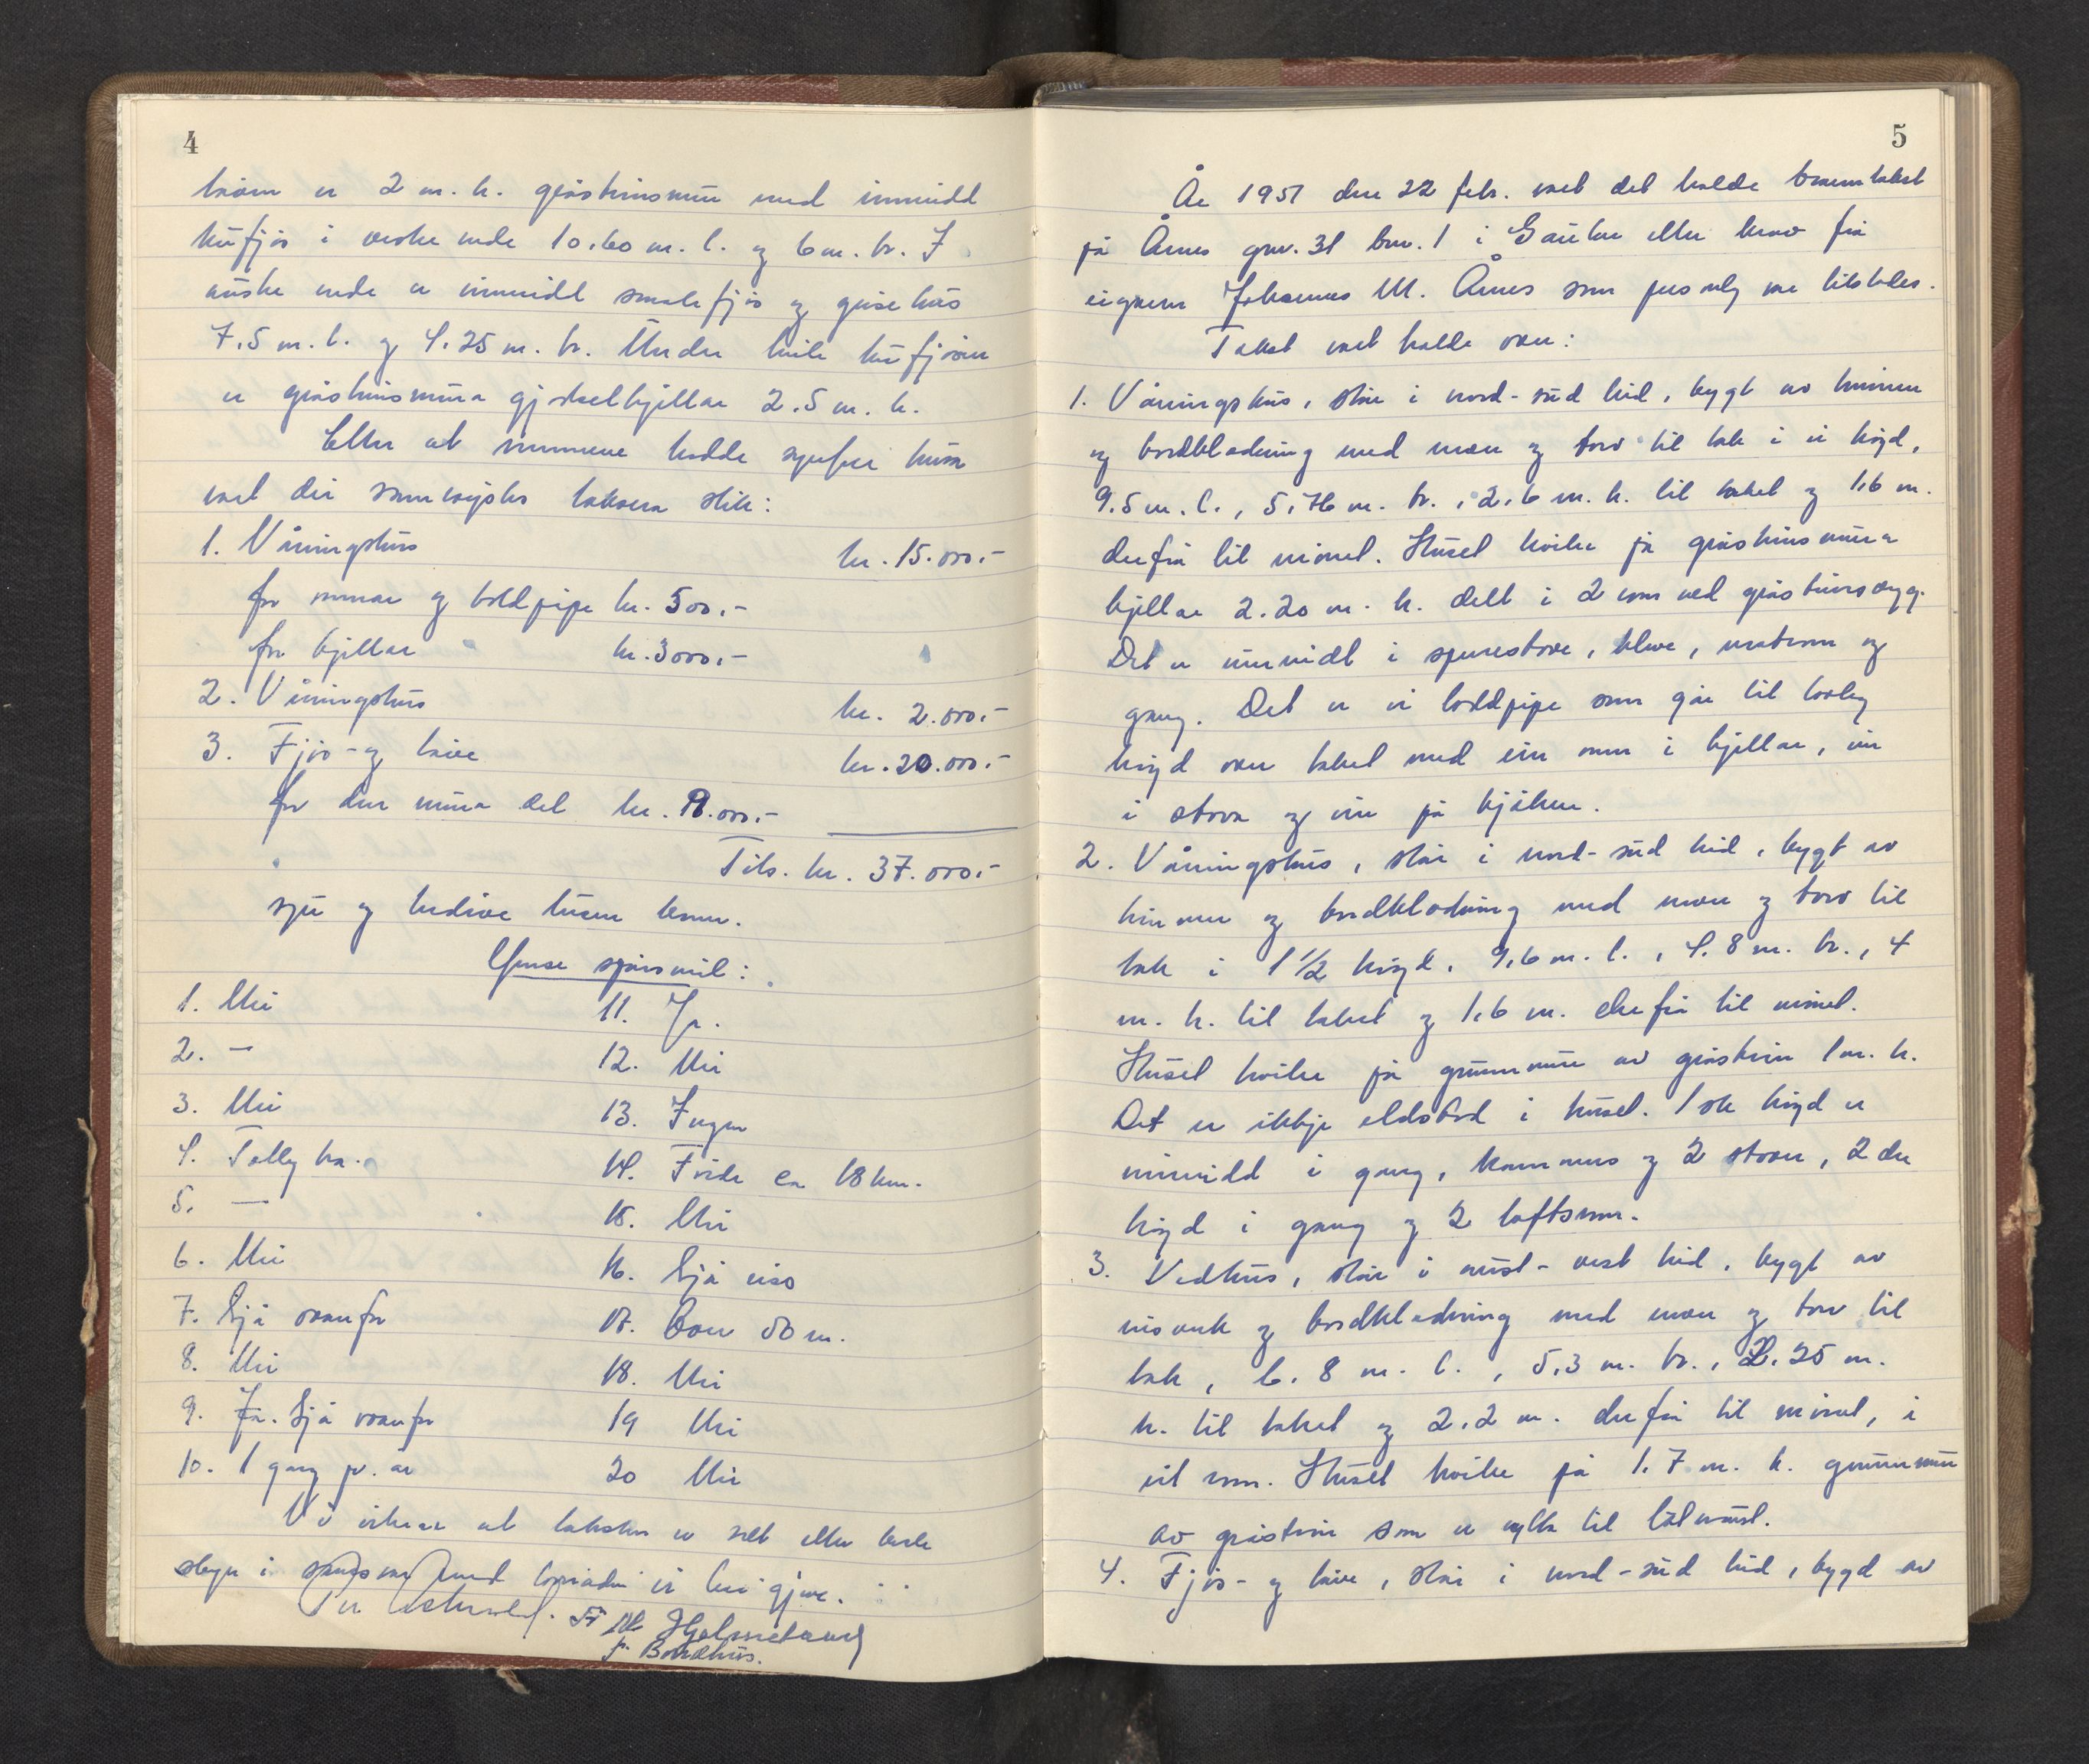 4
er 2 m. h. gråsteinsmur med innreidd
kufjøs i vestre ende 10.60 m. l. og 6 m. br. I
austre ende er innreidd smalefjøs og grisehus
7.5 m. l. og 4.25 m. br. Under heile kufjøsen
er gråsteinsmura gjødselkjellar 2.5 m. h.
Etter at mennene hadde synfare husa
vart dei samrøystes taksera slik:
1. Våningshus kr. 15.000.-
for omnar og tvoldpipe kr. 500.-
for kjellar kr. 3000.-
2. Våningshus kr. 2.000.-
3. Fjøs- og løe kr. 20.000.-
for den mura del kr. 8.000.-
Tils. kr. 37.000.-
sju og tredive tusen kroner.
Ymse spørsmål:
1. Nei
2. —
3. Nei
4. Talleg bra.
5. —
6. Nei
7. Sjå ovanfor
8. Nei
9. Ja. Sjå ovanfor
10. 1 gang pr. år
11. Ja.
12. Nei
13. Ingen
14. Førde ca 18 km.
15. Nei
16. Sjå riss
17. Over 50 m.
18. Nei
19 Nei
20 Nei
Vi at taksten er sett etter beste
skyn i samsvar med lovnaden vi har gjeve.
Hjelmeland
Bondhus.
5
År 1951 den 22 febr. vart det halde branntakst
på Årnes gnr. 31 bnr. 1 i Gaular etter krav frå
eigaren Johannes M. Årnes som personleg var tilstades.
Takst vart halde over:
1. Våningshus, står i nord-sud leid, bygt av timmer
og bordkledning med nævr og torv til tak i ei høgd,
9.5 m. l., 5.76 m. br., 2.6 m. h. til taket og 1.6 m.
derfrå til mønet. Huset kviler på gråsteinsmura
kjellar 2.20 m. h. delt i 2 rom ved gråsteinsvegg.
Det er innreidt i sperrestove, kleve, matrom og
gang. Det er ei tvoldpipe som går til lovleg
høgd over taket med ein omn i kjellar, ein
i stova og ein på kjøken.
2. Våningshus, står i nord-sud leid, bygt av
timmer og bordkledning med nævr og torv til
tak i 1 1/2 høgd, 9.6 m. l., 4.8 m. br., 4
m. h. til taket og 1.6 m. derfrå til mønet.
Huset kviler på grunnmur av gråstein 1 m. h.
Det er ikkje eldstad i huset. 1ste høgd er
innreidd i gang, kammers og 2 stover, 2 dre
høgd i gang og 2 loftsrom.
3. Vedhus, står i aust-vest leid, bygt av
reisverk og bordkledning med nævr og torv til
tak, 6.8 m. l., 5.3 m. br., 2.25 m.
h. til taket og 2.2 m. derfrå til mønet, i
eit rom. Huset kviler på 1.7 m. h. grunnmur
av gråstein som er nytta til båtnaust.
4. Fjøs- og løe, står i nord-sud leid, bygd av